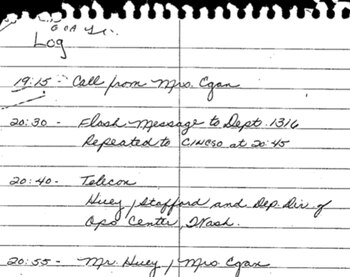 Log
19:15 - Call from Mrs. Egan
20:30 - Flash Message to Dept. 1316
Repeated to CINCSO at 20:45
20:40 - Telecon
Huey, Stafford and Dep. Dir. of
Ops Center, Wash.
20:55 - Mr. Huey / Mrs Egan